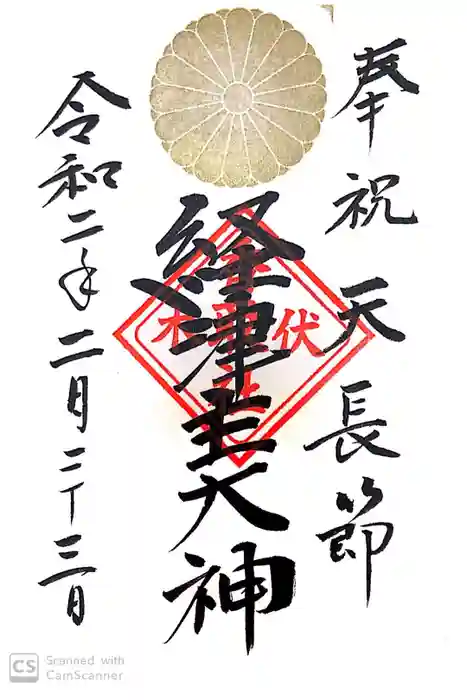 奉祝 天長節
経津主大神
令和二年二月二十三日
伏木
CS Scanned with
CamScanner